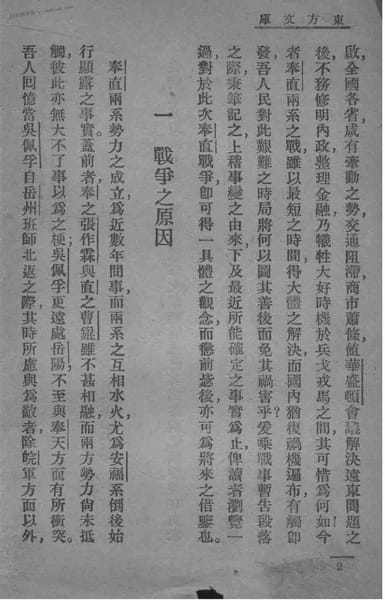 東方文庫
啟全國各省咸有牽動之勢交通阻滯商市蕭條値華盛頓會議解決遠東問題之
後不務修明內政整理金融乃犧牲大好時機於兵戈戎馬之間其可惜爲何如今
者奉直兩系之戰雖以最短之時間得大體之解決而國內猶復禍機遍布有觸卽
發吾人民對此艱難之時局將何以圖其善後而免其禍害乎?爰乘戰事暫告段落
之際秉筆記之上稽事變之由來下及最近所能確定之事實爲止俾讀者瀏覽一
過對於此次奉直戰爭卽可得一具體之觀念而懲前毖後亦可爲將來之借鑒也。
一 戰爭之原因
奉直兩系勢力之成立爲近數年間事而兩系之互相水火尤爲安福系倒後始
行顯露之事實。蓋前者奉之張作霖與直之曹錕雖不甚相融而兩方勢力尙未抵
觸彼此亦無大不了事以爲之梗;吳佩孚更遠處岳陽不至與奉天方面有所衝突。
吾人囘憶當吳佩孚自岳州班師北返之際其時所慮與爲敵者除皖軍方面以外,
2